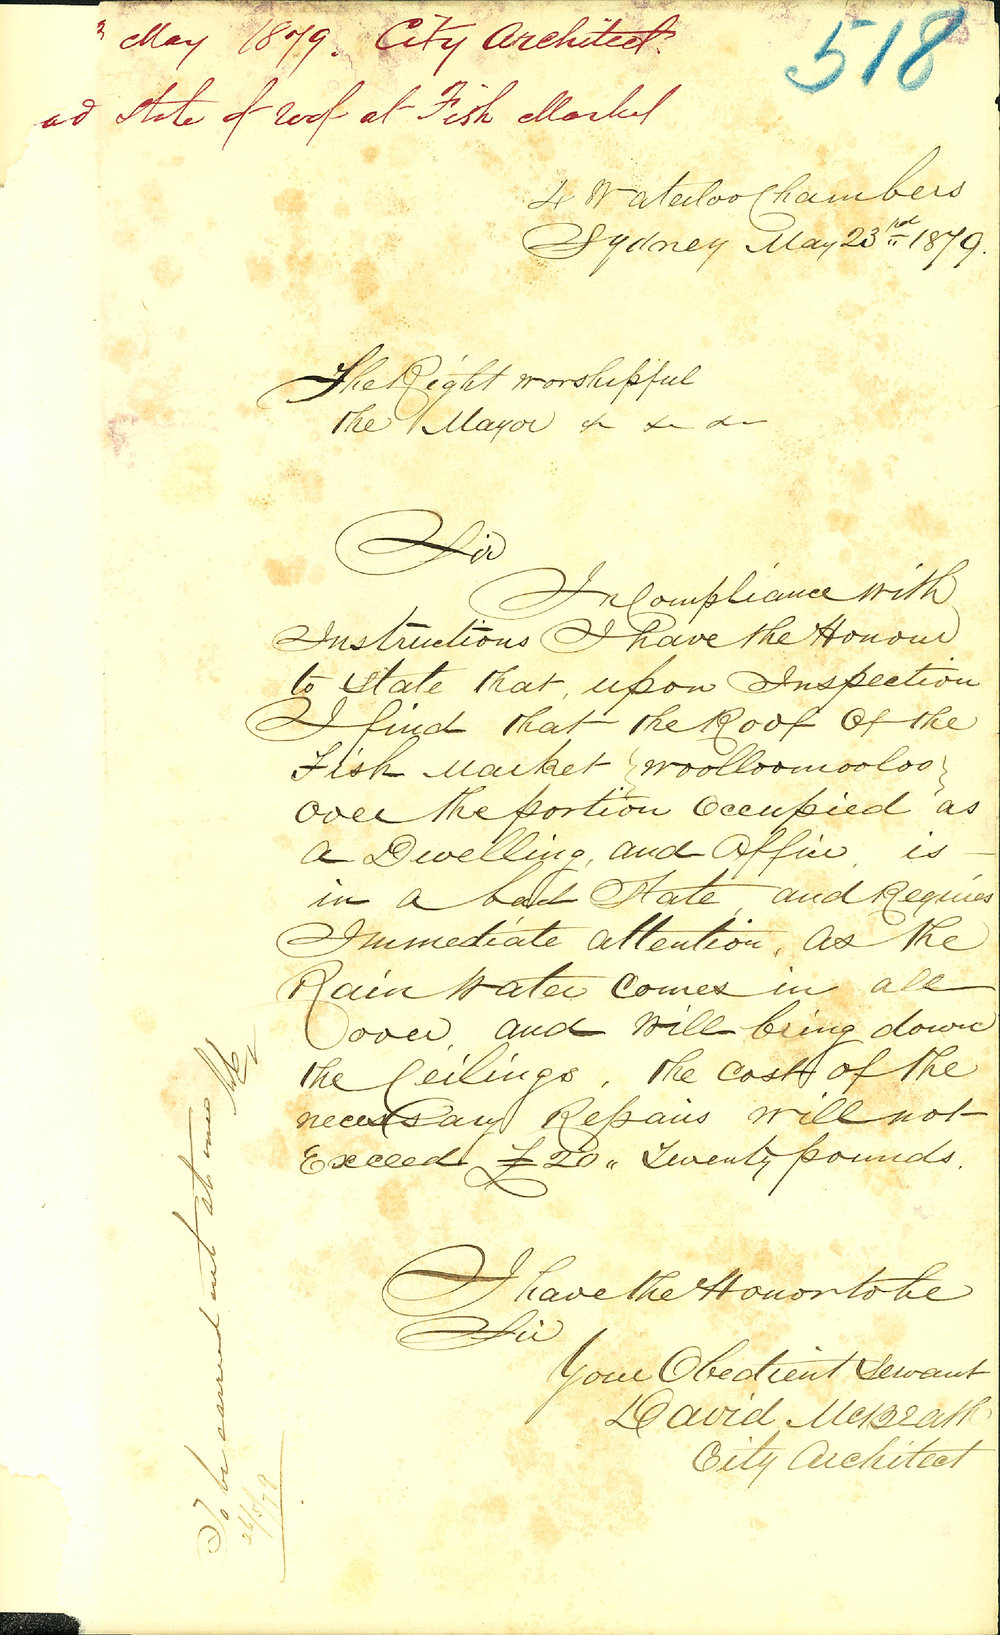 3 May 1879. City Architect.
518
ad state of roof at Fish Market
4 Waterloo Chambers
Sydney May 23rd 1879.
The Right worshipful
the Mayor &c &c &c
Sir
In Compliance with
Instructions I have the Honour
to State that, upon Inspection
I find that the Roof Of the
Fish Market {Woolloomooloo}
over the portion Occupied as
a Dwelling, and Office, is
in a bad State, and Requires
Immediate attention, as the
Rain Water Comes in all
over, and Will bring down
the Ceilings, the cost of the
necessary Repairs will not
Exceed £20,, Twenty pounds.
I have the Honor to be
Sir
Your Obedient Servant
David McBeath
City Architect
To be carried out at once
26/5/79